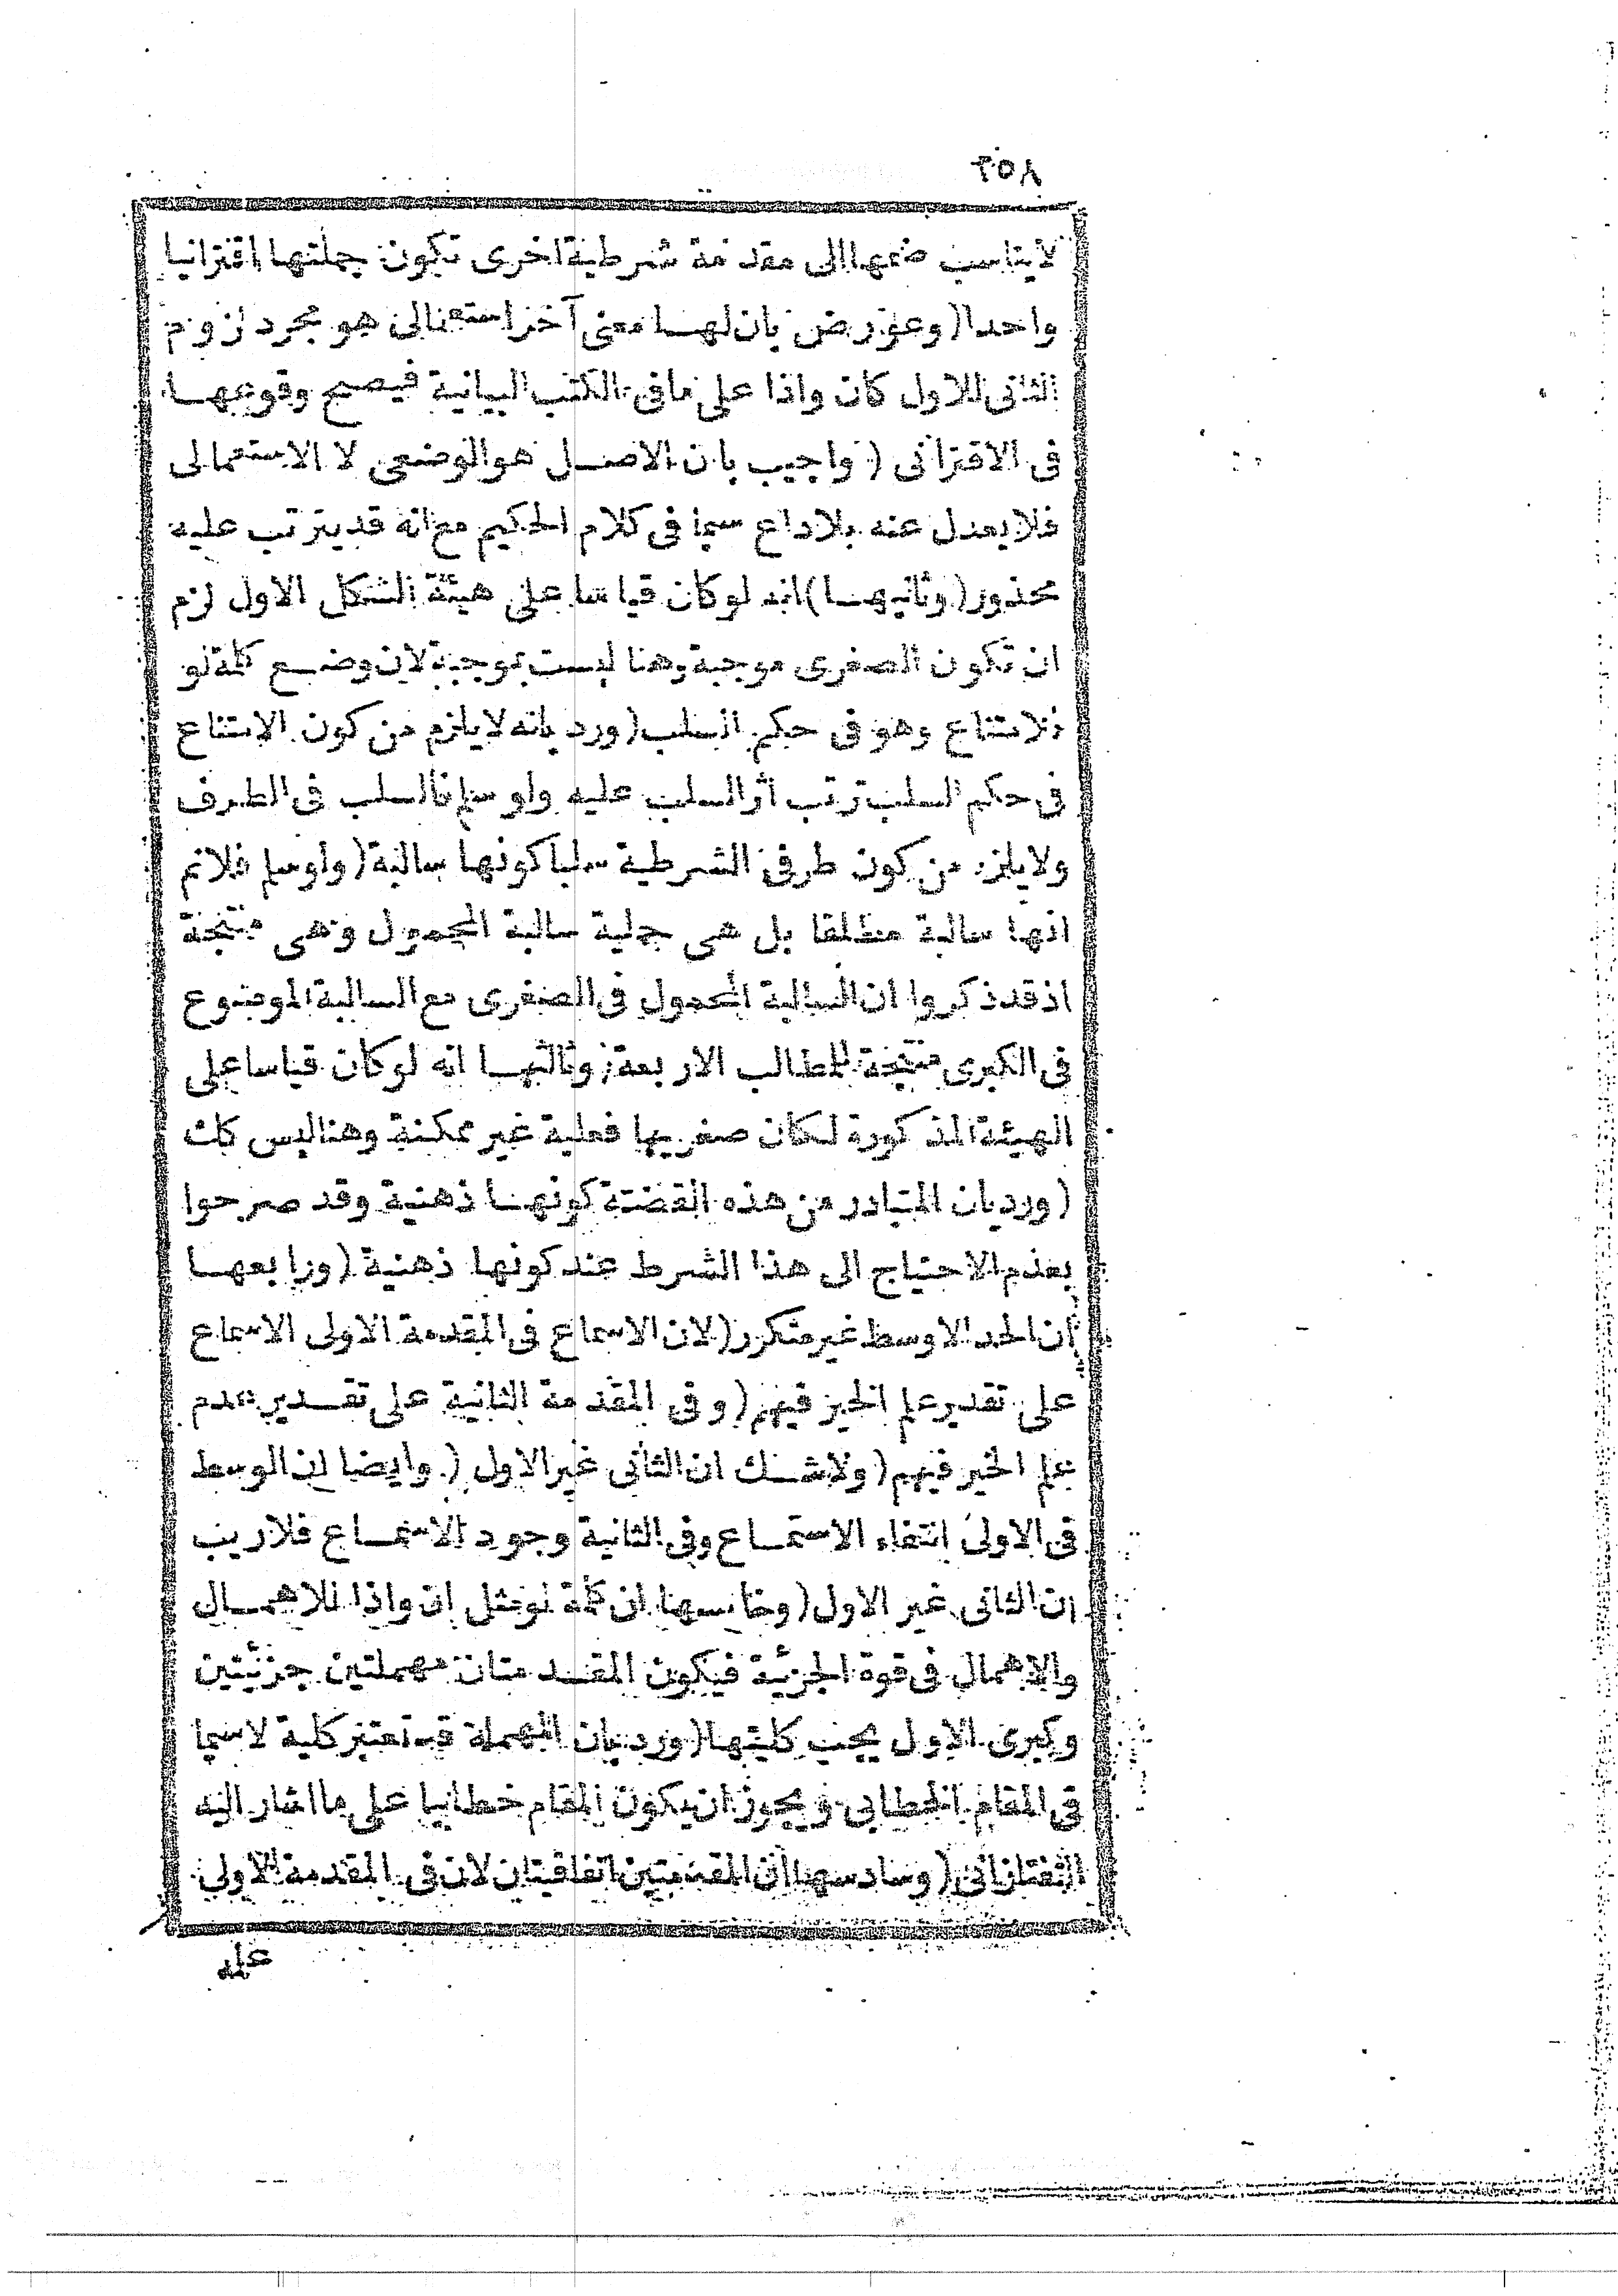 ٢٥٨
لايناسب ضمها الى مقدمة شرطية اخرى تكون جملتها اقترانيا
واحدا (وعورض بان لها معنى آخر استعمالى هو مجرد لزوم
الثانى للاول كان واذا على ما فى الكتب البيانية فيصح وقوعها
فى الاقترانى (واجيب بان الاصل هو الوضعى لا الاستعمالى
فلا يعدل عنه بلا داع سيما فى كلام الحكيم مع انه قد يترتب عليه
محذور (وثانيها) انه لو كان قياسا على هيئة الشكل الاول لزم
ان تكون الصغرى موجبة وهنا ليست بموجبة لان وضع كلمة لو
للامتناع وهو فى حكم السلب (ورد بانه لا يلزم من كون الامتناع
فى حكم السلب ترتب اثر السلب عليه ولو سلم فالسلب فى الطرف
ولا يلزم من كون طرفى الشرطية سلبا كونها سالبة (ولو سلم فلانم
انها سالبة مطلقا بل هى حملية سالبة المحمول وهى منتجة
اذ قد ذكروا ان السالبة المحمول فى الصغرى مع السالبة الموضوع
فى الكبرى منتجة للمطالب الاربعة (وثالثها انه لو كان قياسا على
الهيئة المذكورة لكان صغريها فعلية غير ممكنة وهنا ليس كك
(ورد بان المتبادر من هذه القضية كونها ذهنية وقد صرحوا
بعدم الاحتياج الى هذا الشرط عند كونها ذهنية (ورابعها
ان الحد الاوسط غير متكرر (لان الاسماع فى المقدمة الاولى الاسماع
على تقدير علم الخير فيهم (وفى المقدمة الثانية على تقدير عدم
علم الخير فيهم (ولا شك ان الثانى غير الاول (وايضا ان الوسط
فى الاولى انتفاء الاسماع وفى الثانية وجود الاسماع فلا ريب
ان الثانى غير الاول (وخامسها ان كلمة لو مثل ان واذا للاهمال
والاهمال فى قوة الجزئية فيكون المقدمتان مهملتين جزئيتين
وكبرى الاول يجب كليتها (ورد بان المهملة قد تعتبر كلية لاسيما
فى المقام الخطابى ويجوز ان يكون المقام خطابيا على ما اشار اليه
التفتازانى (وسادسها ان المقدمتين اتفاقيتان لان فى المقدمة الاولى
علم